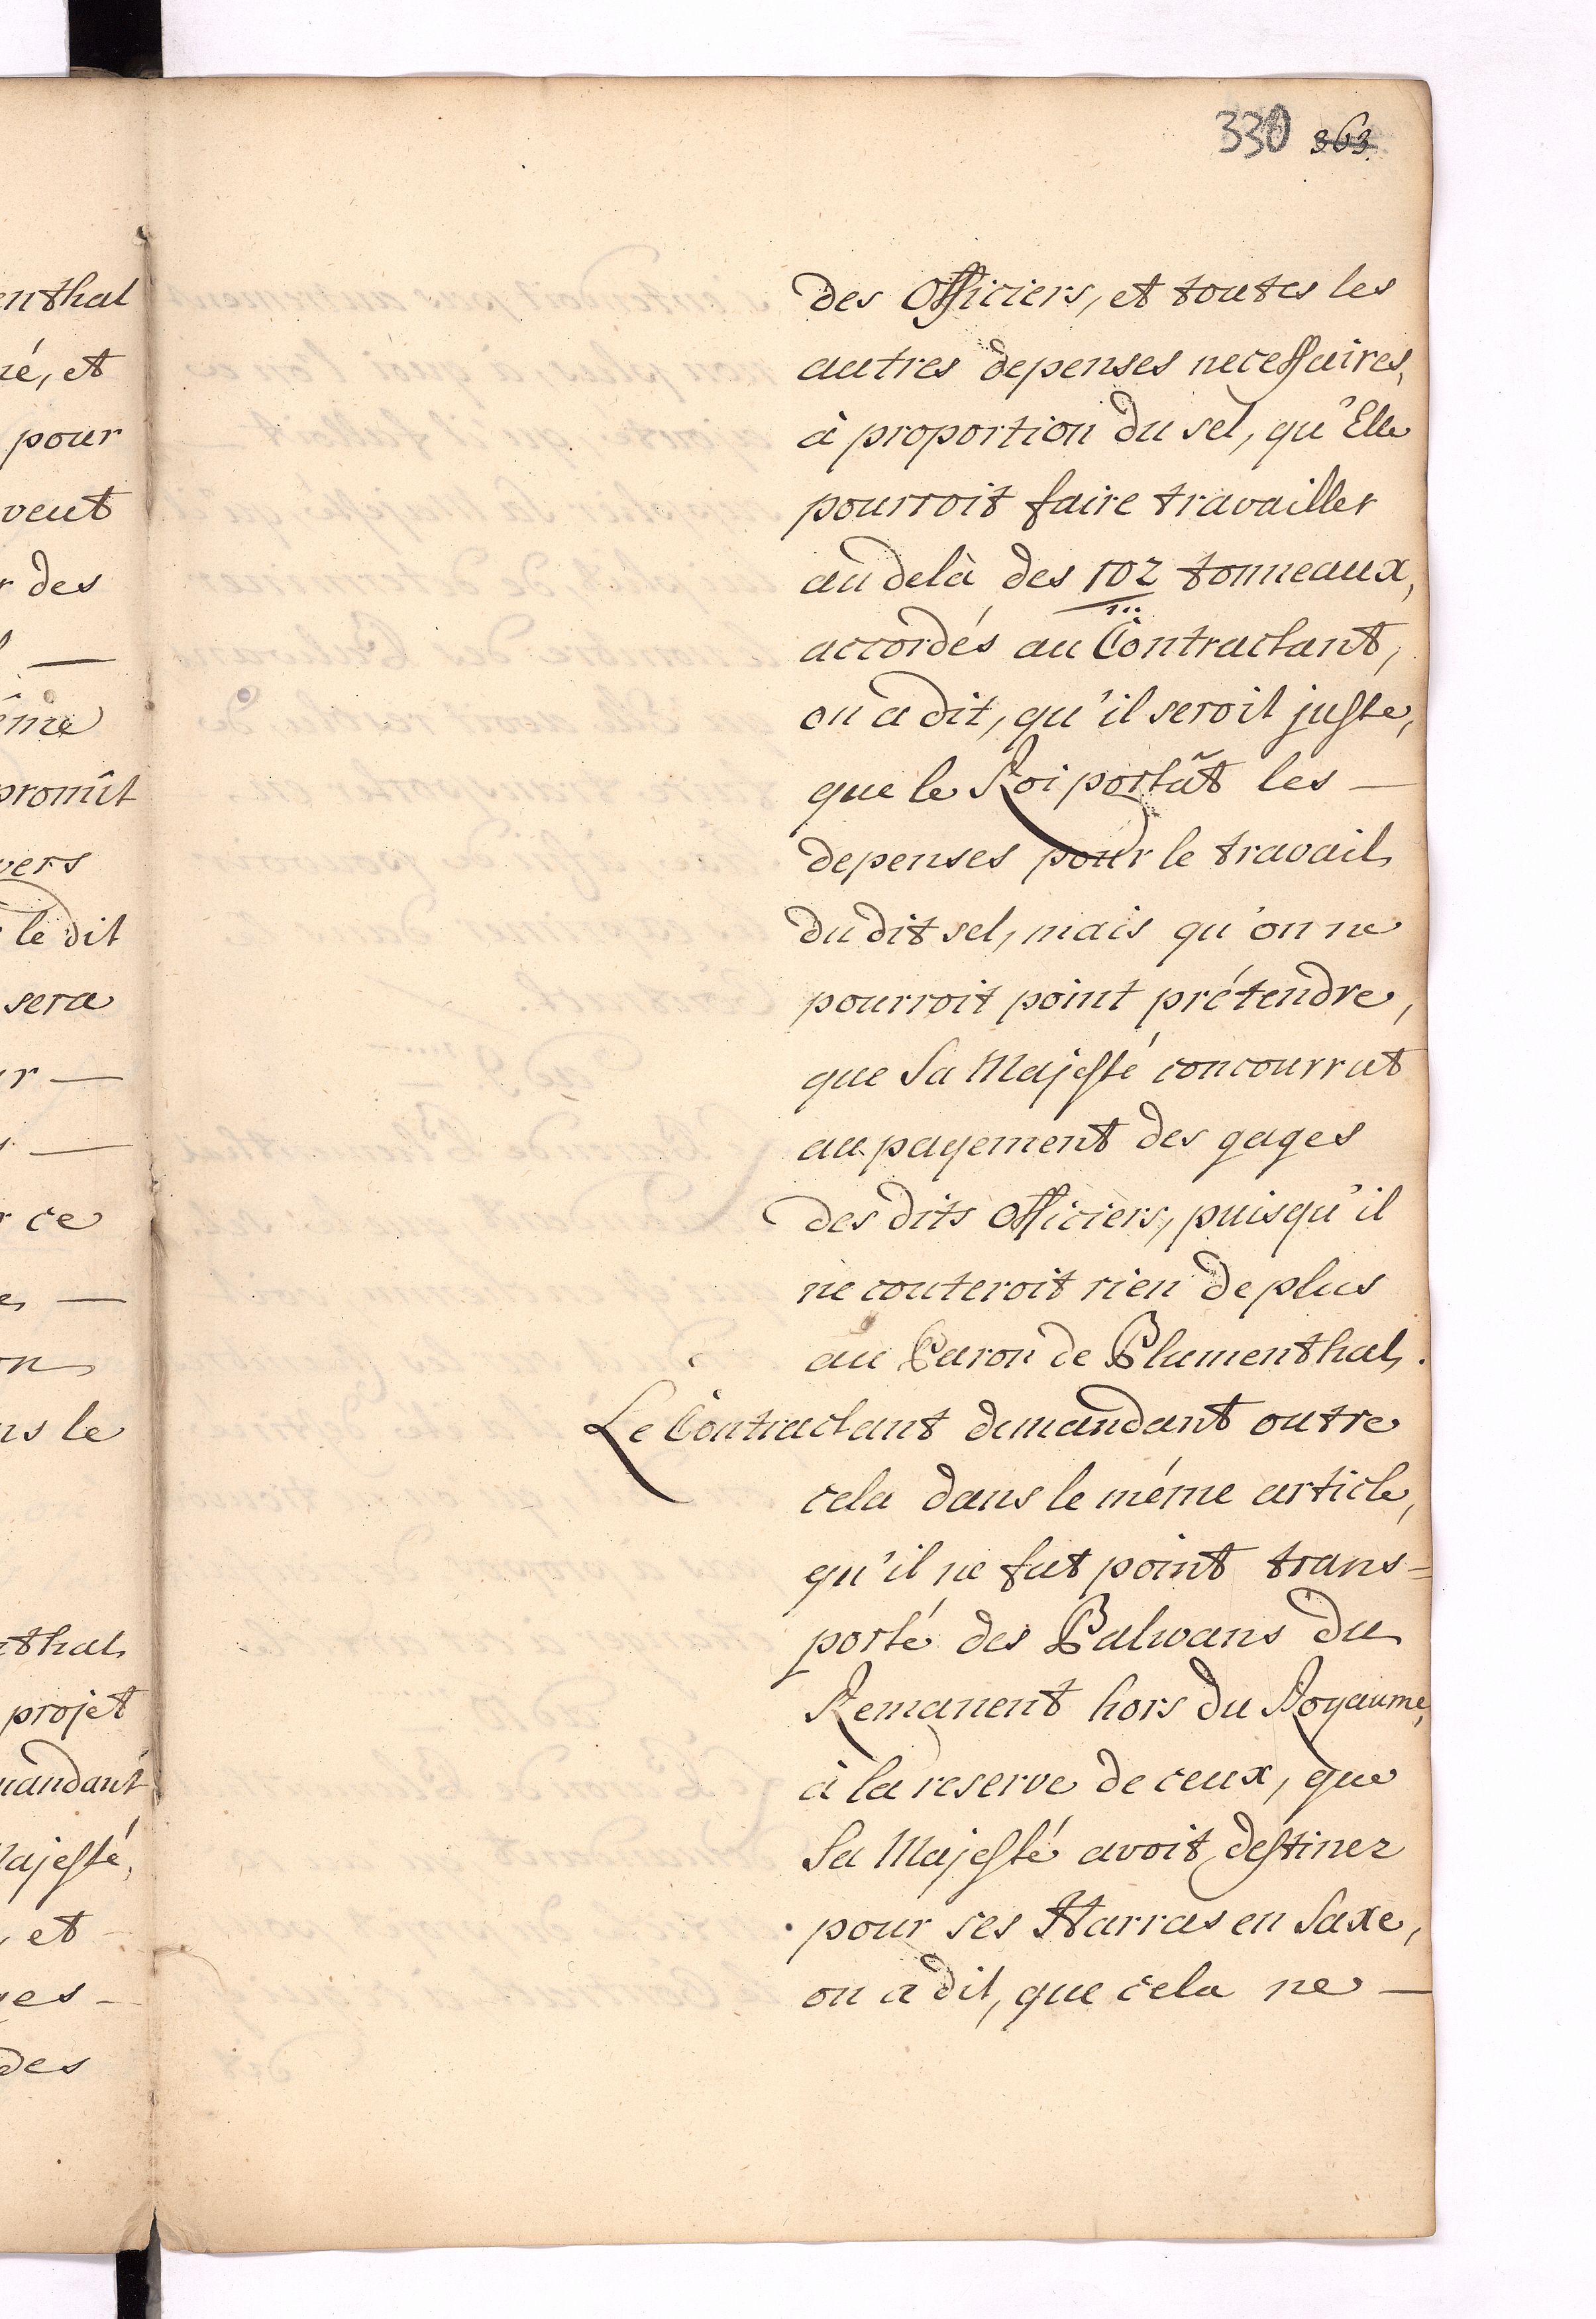 330 363.
enthal
né, et
pour
veut
r des
l —
ême
promît
vers
le dit
sera
ur —
s —
r ce
e, —
on
ns le
nthal
projet
mandant
Majesté,
, et
ges —
des
des Officiers, et toutes les
autres depenses necessaires,
à proportion du sel, qu'Elle
pourroit faire travailler
au delà des 102 tonneaux,
accordés au Contractant,
on a dit, qu'il seroit juste,
que le Roi portât les —
depenses pour le travail
du dit sel, mais qu'on ne
pourroit point prétendre,
que Sa Majesté concourrut
au payement des gages
des dits Officiers, puisqu'il
ne couteroit rien de plus
au Baron de Blumenthal.
Le Contractant demandant outre
cela dans le même article,
qu'il ne fut point trans=
porté des Balwans du
Remanent hors du Royaume,
à la reserve de ceux, que
Sa Majesté avoit destinez
pour ses Harras en Saxe,
on a dit, que cela ne —